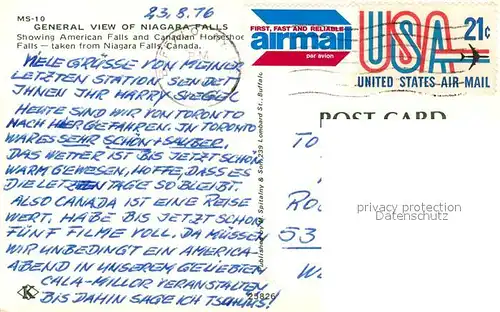 23.8.76
MS-10
GENERAL VIEW OF NIAGARA FALLS
Showing American Falls and Canadian Horseshoe
Falls — taken from Niagara Falls, Canada.
VIELE GRÜSSE VON MEINER
LETZTEN STATION SENDET
IHNEN IHR HARRY
HEUTE SIND WIR VON TORONTO
NACH HIER GEFAHREN. IN TORONTO
WAR ES SEHR SCHÖN + SAUBER.
DAS WETTER IST BIS JETZT SCHÖN
WARM GEWESEN, HOFFE, DASS ES
DIE LETZTEN TAGE SO BLEIBT.
ALSO CANADA IST EINE REISE
WERT. HABE BIS JETZT SCHON
FÜNF FILME VOLL. DA MÜSSEN
WIR UNBEDINGT EIN AMERICA-
ABEND IN UNSEREM GELIEBTEN
CALA-MILLOR VERANSTALTEN
BIS DAHIN SAGE ICH TSCHÜSS!
K
Published by J. Spitalny & Son, 239 Lombard St., Buffalo
23826
FIRST, FAST AND RELIABLE
airmail
par avion
USA 21¢
UNITED STATES AIR-MAIL
POST CARD
TO
RO
53
W
privacy protection
Datenschutz